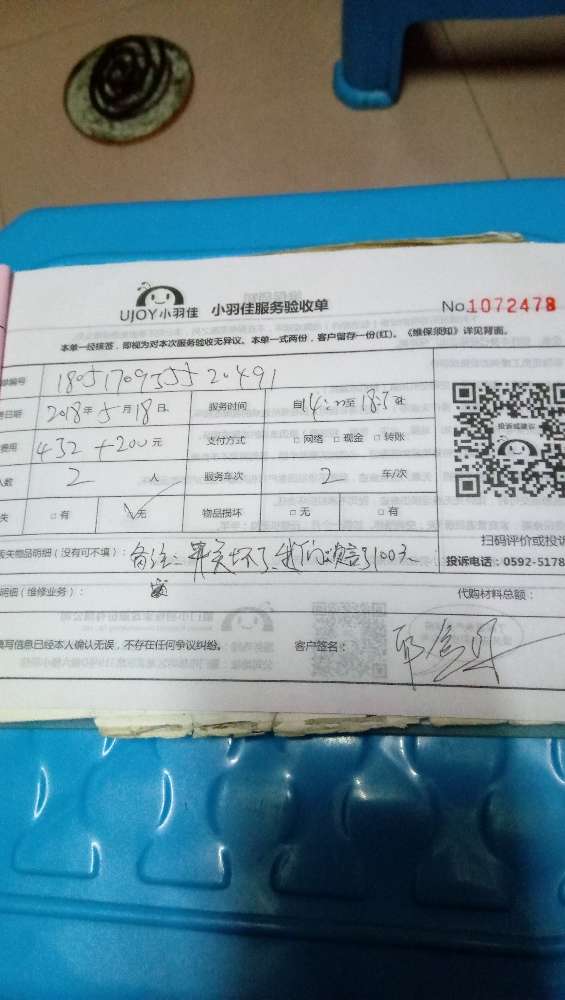 UJOY小羽佳 小羽佳服务验收单 No.1072478
本单一经核签，即视为对本次服务验收无异议。本单一式两份，客户留存一份(红)。《维保须知》详见背面。
单编号 18051709555520491
日期 2018年5月18日 服务时间 自14:00至18:30止
费用 432+200元 支付方式 □网络 □现金 □转账
人数 2 人 服务车次 2 车/次
失 □有 √无 物品损坏 □无 □有
投诉或建议
扫码评价或投诉
丢失物品明细（没有可不填）：备注： 坏了，我们 了100元
投诉电话：0592-5178
明细（维修业务）： 代购材料总额：
填写信息已经本人确认无误，不存在任何争议纠纷。 客户签名：